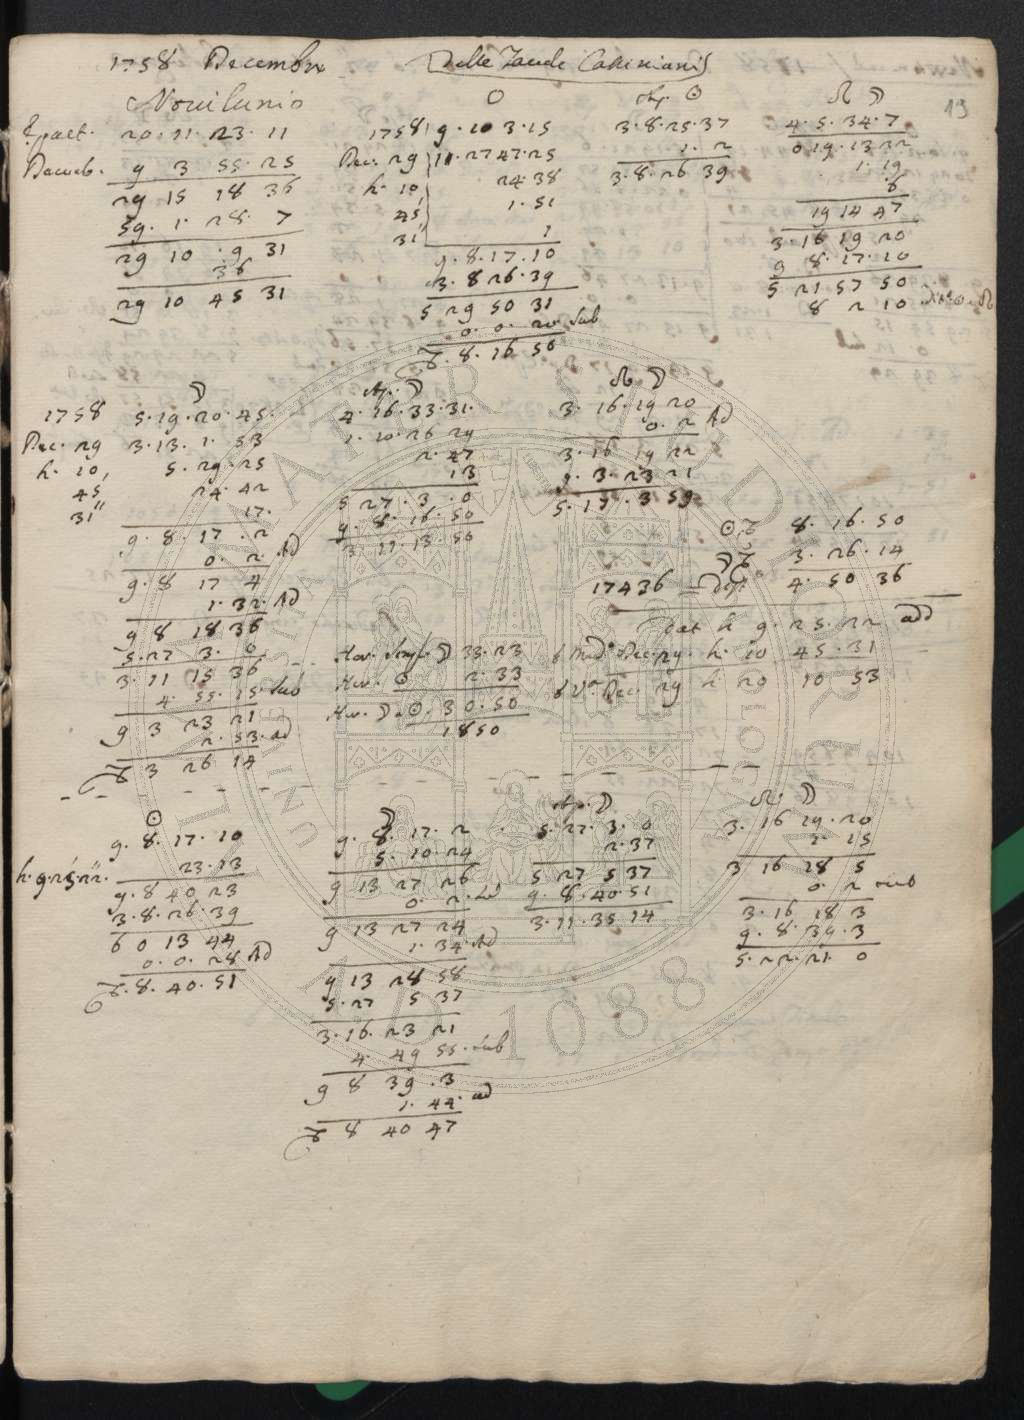 1758 Decembre
Delle Tavole Cassiniane
13
Novilunio
☉
Ap. ☉
☊ ☽
Epact. 20. 11. 23. 11
Decemb. 9 3 55. 25
29 15 18 36
59. 1. 28. 7
29 10 . 9 31
36
29 10 45 31
1758 9. 10 3. 15
Dec. 29 11. 27 47. 25
h. 10, 24. 38
45' 1. 51
31'' 1
9. 8. 17. 10
3. 8 26. 39
5 29 50 31
0. 0. 20 Sub
♑. 8. 16 50
3. 8. 25. 37
1. 2
3. 8. 26 39
4. 5. 34. 7
0 19. 13 32
1. 19
6
19 14 47
3. 16 19 20
9 8. 17. 10
5 21 57 50
8 2 10
☽
1758 5. 19. 20. 45.
Dec. 29 3. 13. 1. 53
h. 10, 5. 29. 25
45, 24. 42
31'' 17.
9. 8. 17 . 2
0. 2. Ad
9. 8 17 4
1. 32. Ad
9 8 18 36
5. 27 3. 0
3. 11 15 36
4. 55. 15. Sub
9 3 23 21
2. 53. ad
♑ 3 26 14
Ap. ☽
4. 16. 33. 31.
1. 10. 26 29
2. 47
13
5 27. 3 . 0
9. 8. 16. 50
3. 11. 13. 50
☊ ☽
3. 16. 19 20
0. 2 Ad
3. 16 19 22
9. 3. 23 21
5. 17. 3 59
☉ ♑ 8. 16. 50
☽ ♑ 3. 26. 14
17436 4. 50 36
h 9. 25. 22 add
Dec. 29. h. 10 45. 31
Dec. 29 h 20 10 53
Hor. ☽ 33. 23
Hor. ☉ 2. 33
Hor. ☽. ☉. 30. 50
1850
☉
9. 8. 17. 10
h. 9. 25. 22. 23. 13
9. 8 40 23
3. 8. 26. 39
6 0 13 44
0. 0. 28 Ad
♑. 8. 40. 51
☽
9. 8. 17. 2
5. 10. 24
9 13 27 26
0. 2. Sub
9 13 27 24
1. 34 Ad
9 13 28 58
5. 27 5 37
3. 16. 23 21
4. 49 55. Sub
9 8 39 . 3
1. 44. ad
♑ 8 40 47
Ap. ☽
5. 27. 3. 0
2. 37
5 27 5 37
9. 8. 40. 51
3. 11. 35 14
☊. ☽
3. 16 19. 20
1. 15
3 16 18 5
0. 2 sub
3. 16 18 3
9. 8. 39. 3
5. 22. 21. 0
ALMA MATER STUDIORUM
UNIVERSITÀ DI BOLOGNA
A.D. 1088